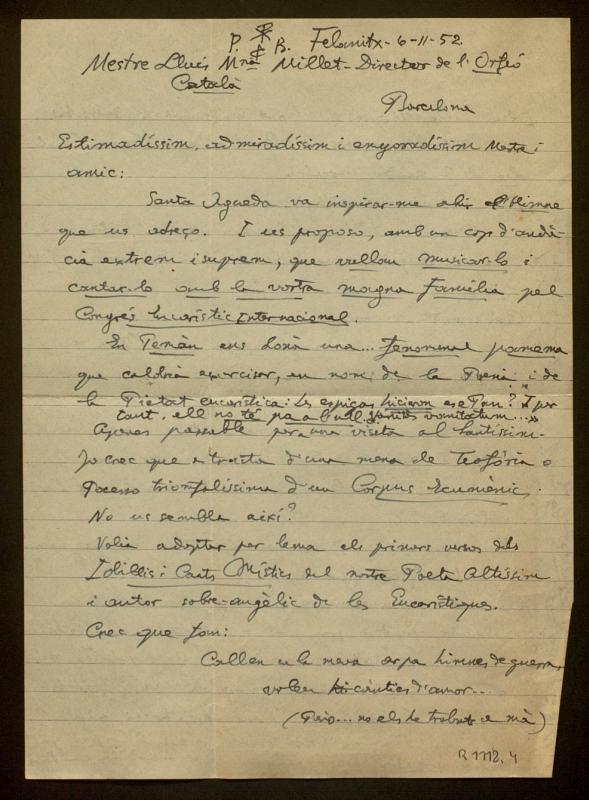 P. B. Felanitx - 6-11-52
Mestre Lluís Mª Millet - Director de l'Orfeó
Català
Barcelona
Estimadíssim, admiradíssim i enyoradíssim Mestre i
amic:
Santa Agueda va inspirar-me ahir l'Himne
que us adreço. I us proposo, amb un cop d'audà-
cia extrem i suprem, que vullau musicar-lo i
cantar-lo amb la vostra magna família pel
Congrés Eucarístic Internacional.
En Pemán ens donà una... fenomenal
que caldria exorcisar, en nom de la Poesia i de
la Pietat eucarística: Las espigas hicieron ese Pan? I per
tant, ell no té pa a bull
passable per a una visita al Santíssim.
Jo crec que es tracta d'una mena de Teofòria o
Processó triomfalíssima d'un Corpus Ecumènic.
No us sembla així?
Volia adoptar per lema els primers versos dels
Idillis i Cants Místics del nostre Poeta Altíssim
i autor sobre-angèlic de les Eucarístiques.
Crec que som:
Callen en la meva arpa himnes de guerra,
volen càntics d'amor...
(Però... no els he trobat a mà)
R 1112, 4